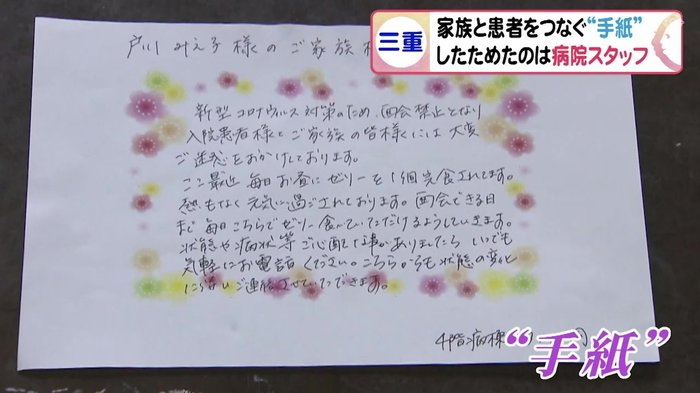 三重
家族と患者をつなぐ“手紙”
したためたのは病院スタッフ
戸川 みえ子 様 の ご家族 様
新型コロナウィルス対策のため、面会禁止となり
入院患者様とご家族の皆様には大変
ご迷惑をおかけしております。
ここ最近 毎日お昼にゼリーを1個完食されてます。
熱もなく元気に過ごされております。面会できる日
まで 毎日こちらでゼリー食べていただけるようしていきます。
状態や病状等ご心配な事がありましたら いつでも
気軽にお電話ください。こちらからも状態の変化
に伴いご連絡させていただきます。
4階病棟
“手紙”